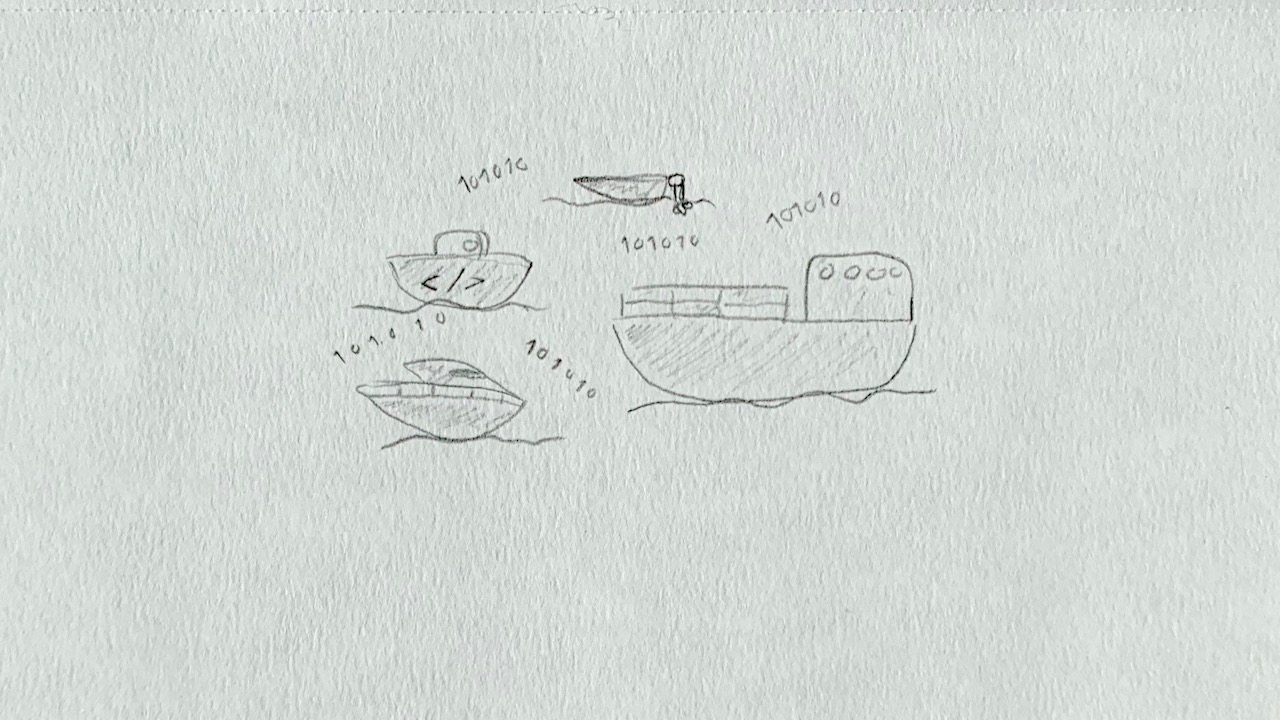 101010
101010
101010
</>
101010
101010